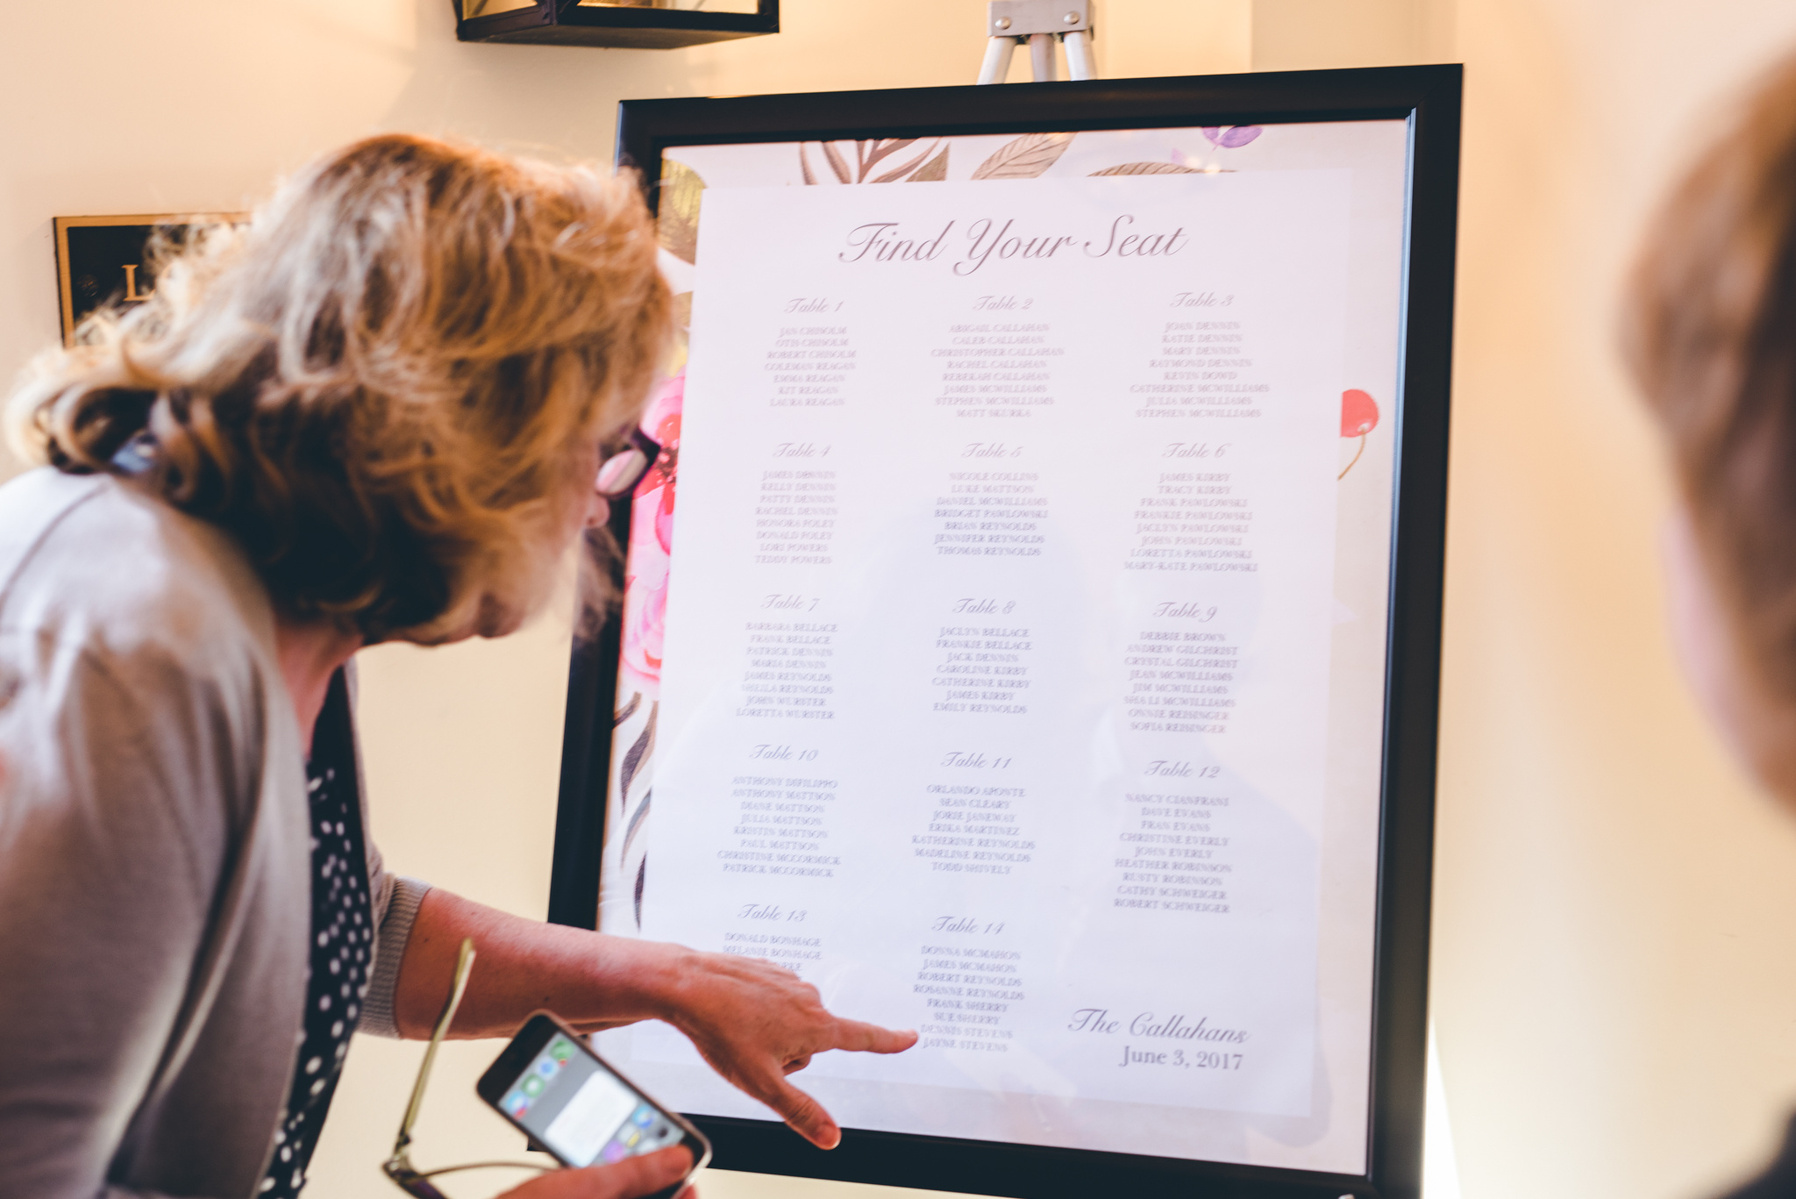 L
Find Your Seat
Table 1
JAN CHISOLM
OTIS CHISOLM
ROBERT CHISOLM
COLEMAN REAGAN
EMMA REAGAN
KIT REAGAN
LAURA REAGAN
Table 2
ABIGAIL CALLAHAN
CALEB CALLAHAN
CHRISTOPHER CALLAHAN
RACHEL CALLAHAN
REBEKAH CALLAHAN
JAMES MCWILLIAMS
STEPHEN MCWILLIAMS
MATT SKURKA
Table 3
JOAN DENNIN
KATIE DENNIN
MARY DENNIN
RAYMOND DENNIN
KEVIN DOWD
CATHERINE MCWILLIAMS
JULIA MCWILLIAMS
STEPHEN MCWILLIAMS
Table 4
JAMES DENNIN
KELLY DENNIN
PATTY DENNIN
RACHEL DENNIN
HONORA FOLEY
DONALD FOLEY
LORI POWERS
TEDDY POWERS
Table 5
NICOLE COLLINS
LUKE MATTSON
DANIEL MCWILLIAMS
BRIDGET PAWLOWSKI
BRIAN REYNOLDS
JENNIFER REYNOLDS
THOMAS REYNOLDS
Table 6
JAMES KIRBY
TRACY KIRBY
FRANK PAWLOWSKI
FRANKIE PAWLOWSKI
JACLYN PAWLOWSKI
JOHN PAWLOWSKI
LORETTA PAWLOWSKI
MARY-KATE PAWLOWSKI
Table 7
BARBARA BELLACE
FRANK BELLACE
PATRICK DENNIN
MARIA DENNIN
JAMES REYNOLDS
SHEILA REYNOLDS
JOHN WURSTER
LORETTA WURSTER
Table 8
JACLYN BELLACE
FRANKIE BELLACE
JACK DENNIN
CAROLINE KIRBY
CATHERINE KIRBY
JAMES KIRBY
EMILY REYNOLDS
Table 9
DEBBIE BROWN
ANDREW GILCHRIST
CRYSTAL GILCHRIST
JEAN MCWILLIAMS
JIM MCWILLIAMS
MCWILLIAMS
REISINGER
SOFIA REISINGER
Table 10
ANTHONY DIFILIPPO
ANTHONY MATTSON
DIANE MATTSON
JULIA MATTSON
KRISTIN MATTSON
PAUL MATTSON
CHRISTINE MCCORMICK
PATRICK MCCORMICK
Table 11
ORLANDO APONTE
SEAN CLEARY
JORIE JANEWAY
ERIKA MARTINEZ
KATHERINE REYNOLDS
MADELINE REYNOLDS
TODD SHIVELY
Table 12
NANCY CIANFRANI
DAVE EVANS
FRAN EVANS
CHRISTINE EVERLY
JOHN EVERLY
HEATHER ROBINSON
RUSTY ROBINSON
CATHY SCHWEIGER
ROBERT SCHWEIGER
Table 13
DONALD BONHAGE
MELANIE BONHAGE
Table 14
DONNA MCMAHON
JAMES MCMAHON
ROBERT REYNOLDS
ROSANNE REYNOLDS
FRANK SHERRY
SUE SHERRY
DENNIS STEVENS
JAYNE STEVENS
The Callahans
June 3, 2017